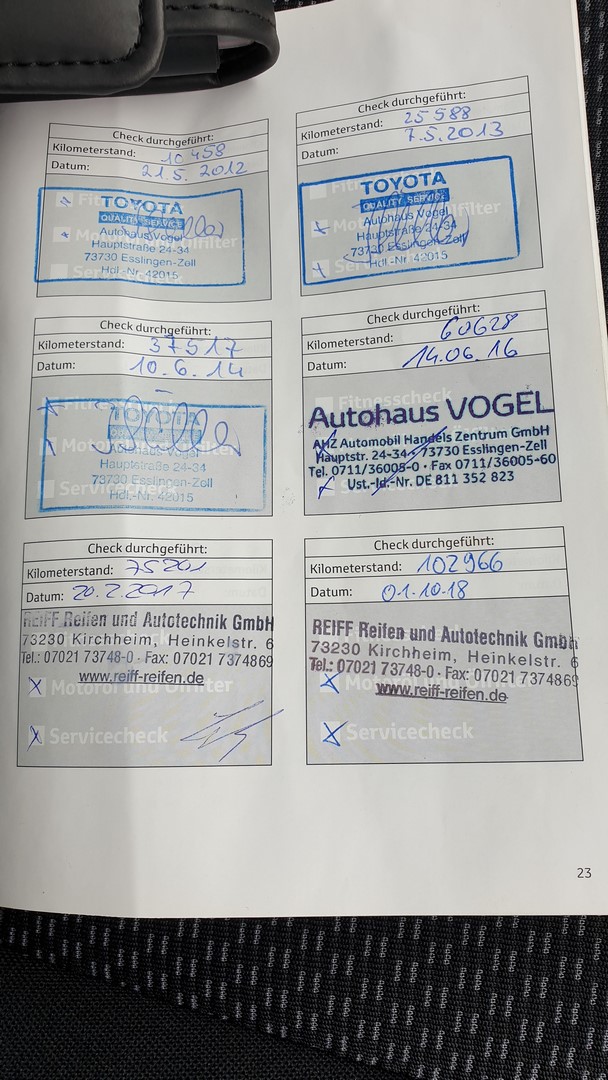 Check durchgeführt:
Kilometerstand: 10 458
Datum: 21.5. 2012
TOYOTA
QUALITY SERVICE
Autohaus Vogel
Hauptstraße 24-34
73730 Esslingen-Zell
Hdl.-Nr. 42015
Check durchgeführt:
Kilometerstand: 25 588
Datum: 7.5.2013
TOYOTA
QUALITY SERVICE
Autohaus Vogel
Hauptstraße 24-34
73730 Esslingen-Zell
Hdl.-Nr. 42015
Check durchgeführt:
Kilometerstand: 37517
Datum: 10.6.14
TOYOTA
Autohaus Vogel
Hauptstraße 24-34
73730 Esslingen-Zell
Hdl.-Nr. 42015
Servicecheck
Check durchgeführt:
Kilometerstand: 60628
Datum: 14.06.16
Fitnesscheck
Autohaus VOGEL
AHZ Automobil Handels Zentrum GmbH
Hauptstr. 24-34 · 73730 Esslingen-Zell
Tel. 0711/36005-0 · Fax 0711/36005-60
Ust.-Id.-Nr. DE 811 352 823
Check durchgeführt:
Kilometerstand: 75201
Datum: 20.2.2017
REIFF Reifen und Autotechnik GmbH
73230 Kirchheim, Heinkelstr. 6
Tel.: 07021 73748-0 · Fax: 07021 7374869
www.reiff-reifen.de
X Motoröl und Ölfilter
X Servicecheck
Check durchgeführt:
Kilometerstand: 102966
Datum: 01.10.18
REIFF Reifen und Autotechnik GmbH
73230 Kirchheim, Heinkelstr. 6
Tel.: 07021 73748-0 · Fax: 07021 7374869
www.reiff-reifen.de
X Motoröl und Ölfilter
X Servicecheck
23